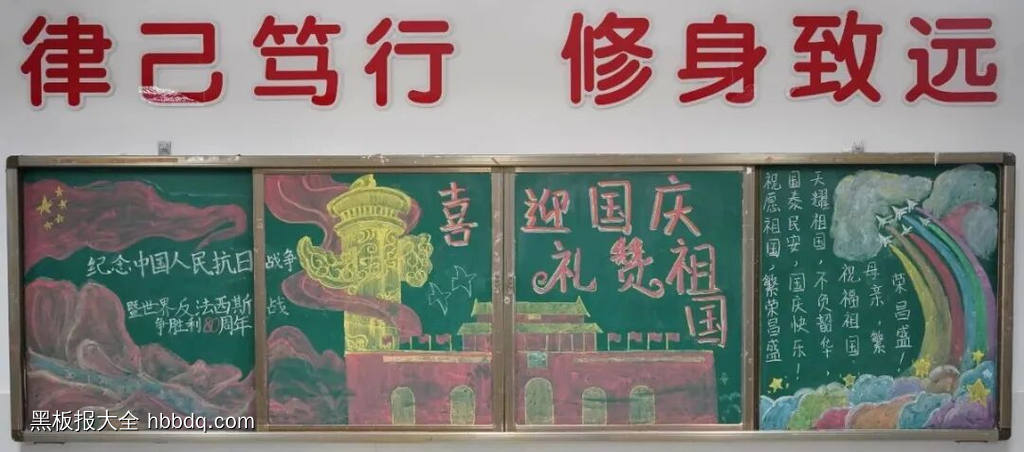 律己笃行 修身致远
纪念中国人民抗日战争
暨世界反法西斯战
争胜利80周年
喜迎国庆
礼赞祖国
祝愿祖国,繁荣昌盛
国泰民安,国庆快乐!
天耀祖国,不负韶华,
祝福祖国
母亲,繁
荣昌盛!
黑板报大全 hbbdq.com